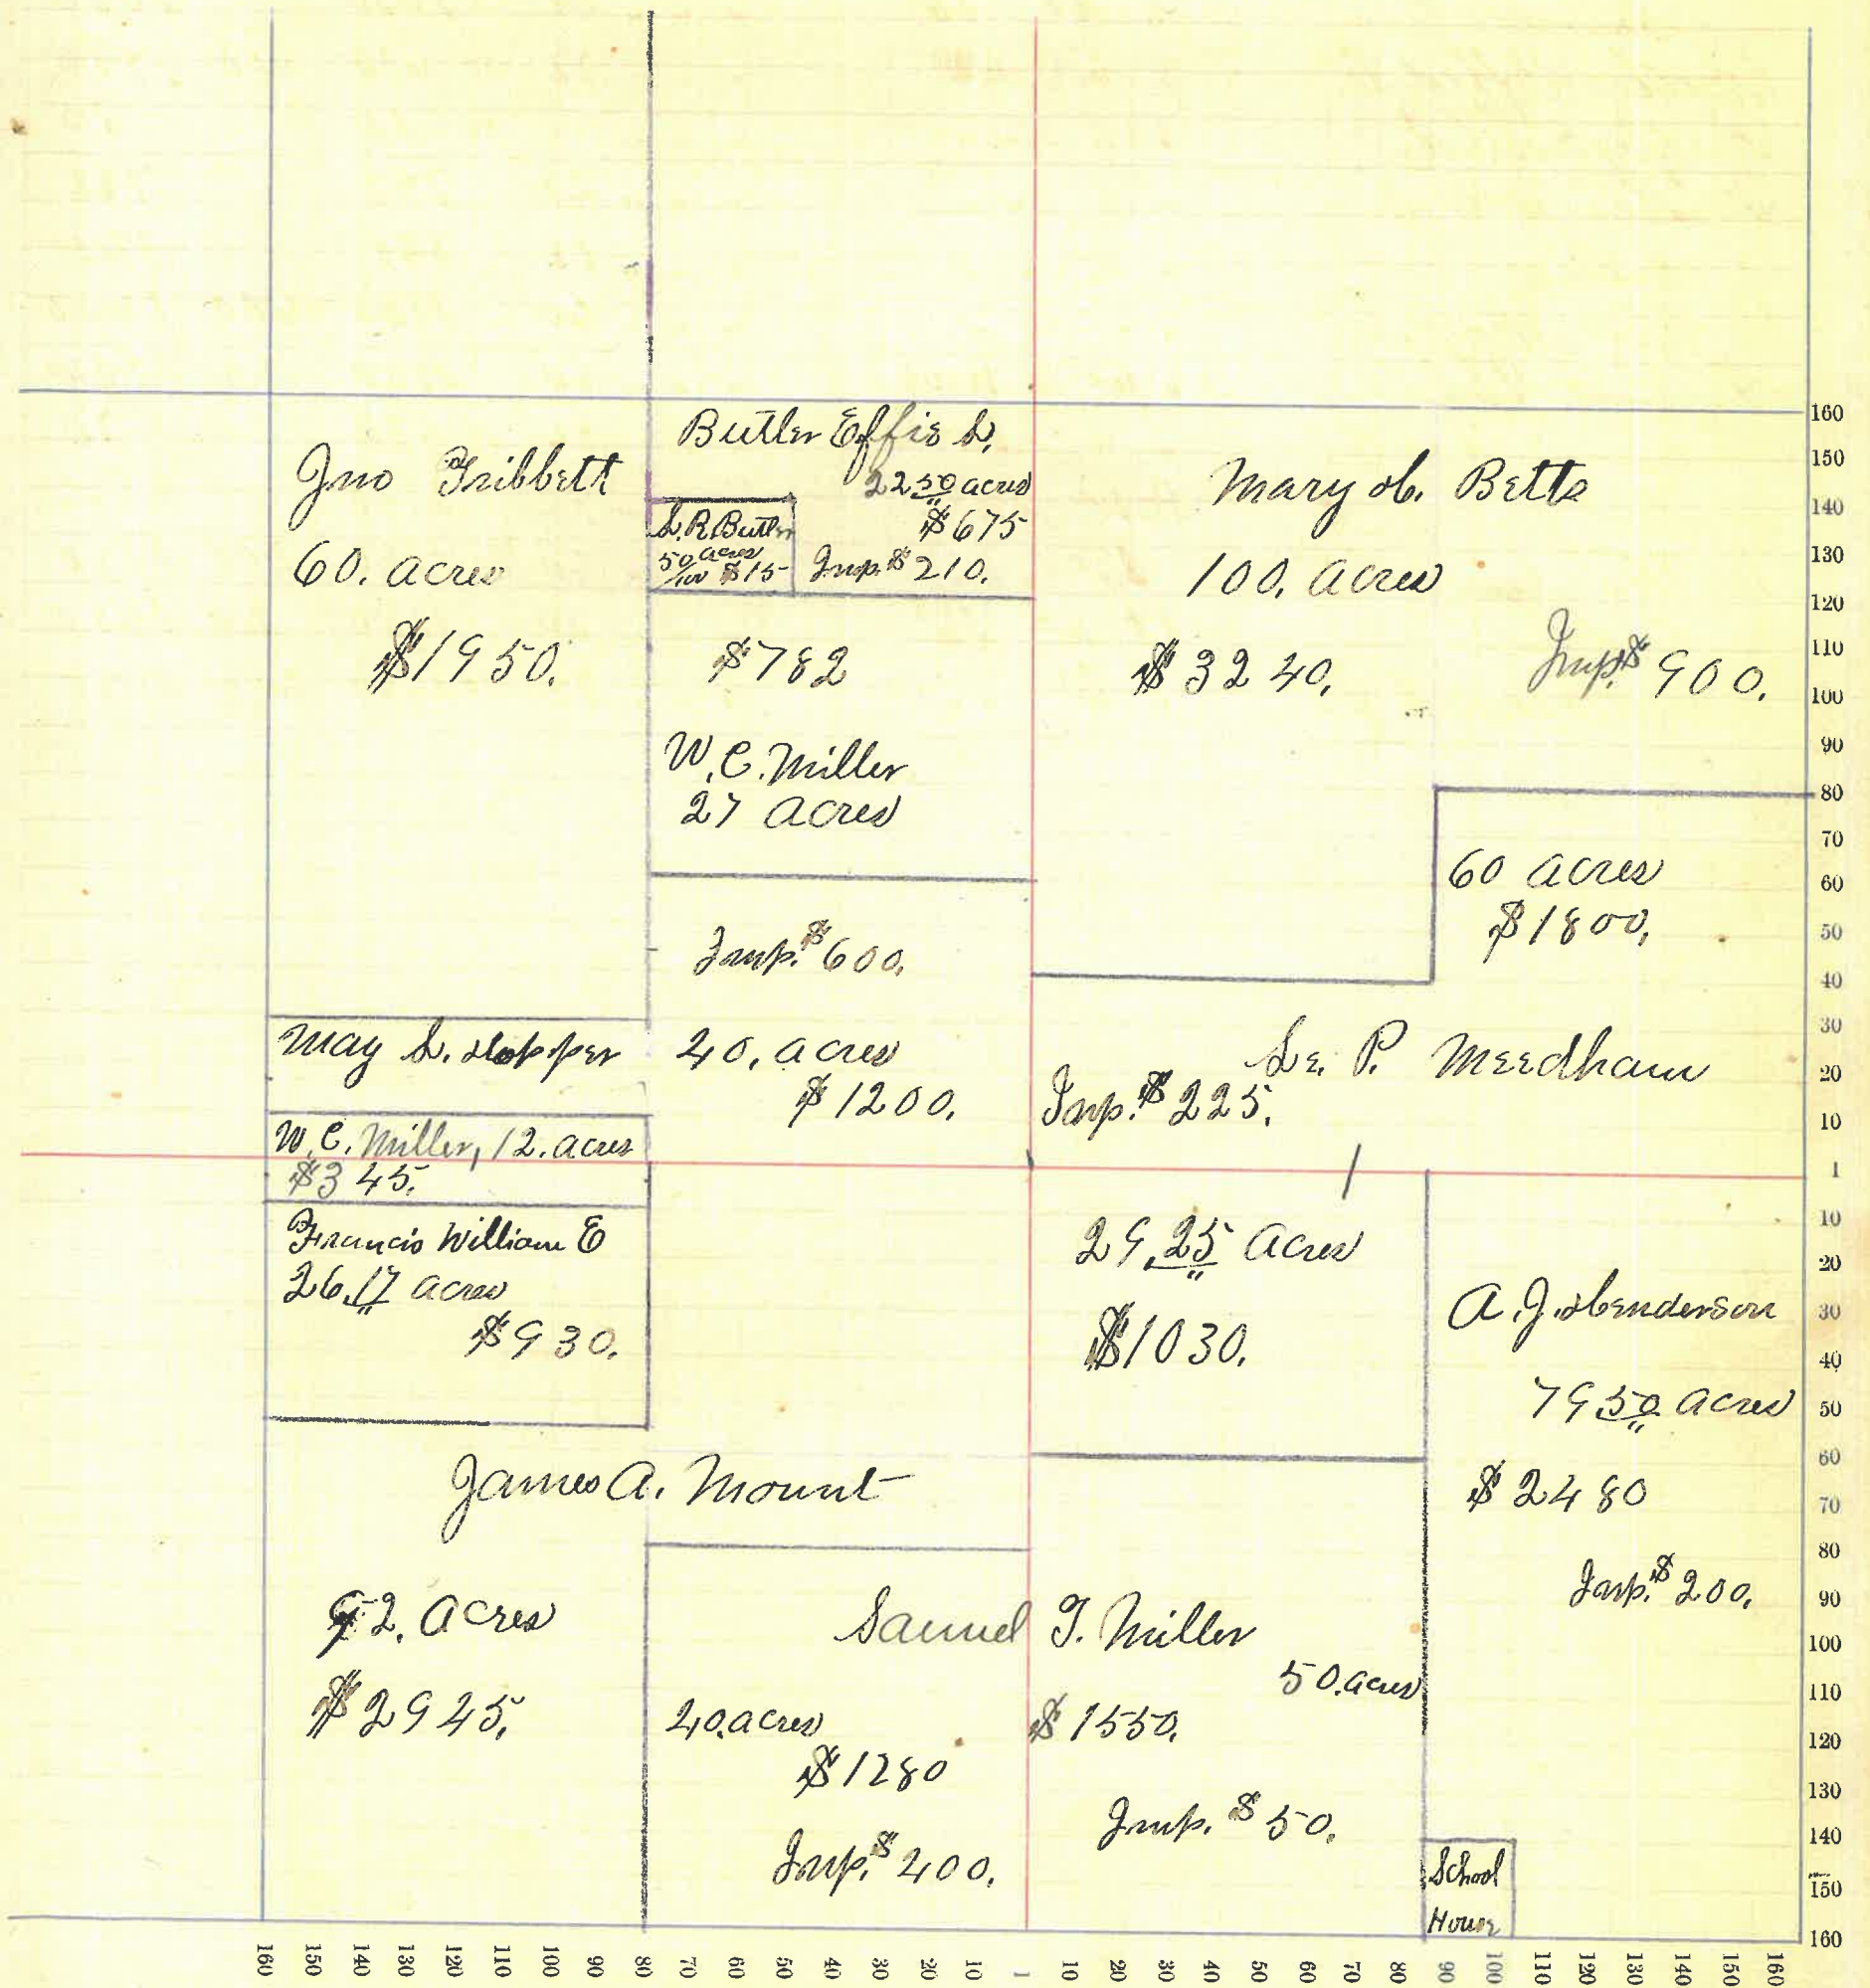 Jno Gribbett
60. acres
$1950.
Butler Effie L.
22 50 acres
$675
Imp. $210.
L. R. Butler
50/100 acres $15
$782
W. C. Miller
27 acres
Imp. $600.
40. acres
$1200.
Mary H. Betts
100. acres
$3240.
Imp. $900.
60 acres
$1800.
Le. P. Meedham
Imp. $225.
May L. Hopper
W. C. Miller, 12. acres
$345.
Francis William E
26.17 acres
$930.
29.25 acres
$1030.
A. J. Henderson
79 50 acres
$2480
Imp. $200.
James A. Mount
92. acres
$2945.
Samuel T. Miller
40. acres
$1280
Imp. $400.
50. acres
$1550.
Imp. $50.
School
House
160
150
140
130
120
110
100
90
80
70
60
50
40
30
20
10
1
10
20
30
40
50
60
70
80
90
100
110
120
130
140
150
160
160 150 140 130 120 110 100 90 80 70 60 50 40 30 20 10 1 10 20 30 40 50 60 70 80 90 100 110 120 130 140 150 160